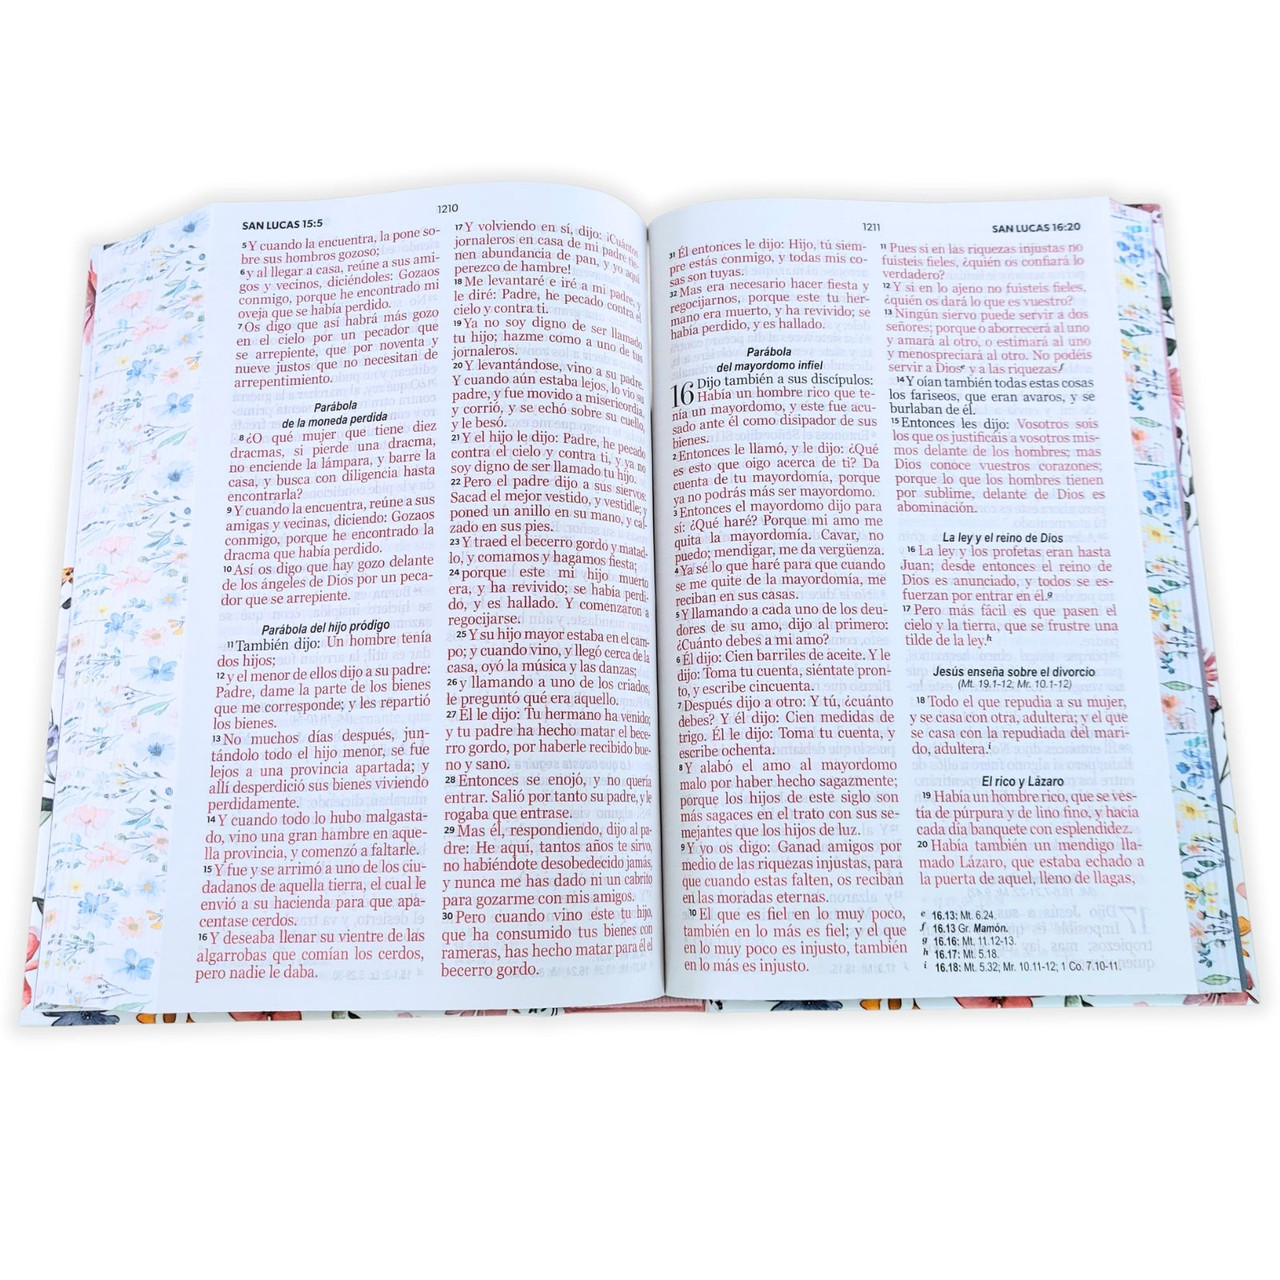 SAN LUCAS 15:5
1210
5 Y cuando la encuentra, la pone so-
bre sus hombros gozoso;
6 y al llegar a casa, reúne a sus ami-
gos y vecinos, diciéndoles: Gozaos
conmigo, porque he encontrado mi
oveja que se había perdido.
7 Os digo que así habrá más gozo
en el cielo por un pecador que
se arrepiente, que por noventa y
nueve justos que no necesitan de
arrepentimiento.
Parábola
de la moneda perdida
8 ¿O qué mujer que tiene diez
dracmas, si pierde una dracma,
no enciende la lámpara, y barre la
casa, y busca con diligencia hasta
encontrarla?
9 Y cuando la encuentra, reúne a sus
amigas y vecinas, diciendo: Gozaos
conmigo, porque he encontrado la
dracma que había perdido.
10 Así os digo que hay gozo delante
de los ángeles de Dios por un peca-
dor que se arrepiente.
Parábola del hijo pródigo
11 También dijo: Un hombre tenía
dos hijos;
12 y el menor de ellos dijo a su padre:
Padre, dame la parte de los bienes
que me corresponde; y les repartió
los bienes.
13 No muchos días después, jun-
tándolo todo el hijo menor, se fue
lejos a una provincia apartada; y
allí desperdició sus bienes viviendo
perdidamente.
14 Y cuando todo lo hubo malgasta-
do, vino una gran hambre en aque-
lla provincia, y comenzó a faltarle.
15 Y fue y se arrimó a uno de los ciu-
dadanos de aquella tierra, el cual le
envió a su hacienda para que apa-
centase cerdos.
16 Y deseaba llenar su vientre de las
algarrobas que comían los cerdos,
pero nadie le daba.
17 Y volviendo en sí, dijo: ¡Cuántos
jornaleros en casa de mi padre tie-
nen abundancia de pan, y yo aquí
perezco de hambre!
18 Me levantaré e iré a mi padre, y
le diré: Padre, he pecado contra el
cielo y contra ti.
19 Ya no soy digno de ser llamado
tu hijo; hazme como a uno de tus
jornaleros.
20 Y levantándose, vino a su padre.
Y cuando aún estaba lejos, lo vio su
padre, y fue movido a misericordia,
y corrió, y se echó sobre su cuello,
y le besó.
21 Y el hijo le dijo: Padre, he pecado
contra el cielo y contra ti, y ya no
soy digno de ser llamado tu hijo.
22 Pero el padre dijo a sus siervos:
Sacad el mejor vestido, y vestidle; y
poned un anillo en su mano, y cal-
zado en sus pies.
23 Y traed el becerro gordo y matad-
lo, y comamos y hagamos fiesta;
24 porque este mi hijo muerto
era, y ha revivido; se había perdi-
do, y es hallado. Y comenzaron a
regocijarse.
25 Y su hijo mayor estaba en el cam-
po; y cuando vino, y llegó cerca de la
casa, oyó la música y las danzas;
26 y llamando a uno de los criados,
le preguntó qué era aquello.
27 Él le dijo: Tu hermano ha venido;
y tu padre ha hecho matar el bece-
rro gordo, por haberle recibido bue-
no y sano.
28 Entonces se enojó, y no quería
entrar. Salió por tanto su padre, y le
rogaba que entrase.
29 Mas él, respondiendo, dijo al pa-
dre: He aquí, tantos años te sirvo,
no habiéndote desobedecido jamás,
y nunca me has dado ni un cabrito
para gozarme con mis amigos.
30 Pero cuando vino este tu hijo,
que ha consumido tus bienes con
rameras, has hecho matar para él el
becerro gordo.
1211
SAN LUCAS 16:20
31 Él entonces le dijo: Hijo, tú siem-
pre estás conmigo, y todas mis co-
sas son tuyas.
32 Mas era necesario hacer fiesta y
regocijarnos, porque este tu her-
mano era muerto, y ha revivido; se
había perdido, y es hallado.
Parábola
del mayordomo infiel
16 Dijo también a sus discípulos:
Había un hombre rico que te-
nía un mayordomo, y este fue acu-
sado ante él como disipador de sus
bienes.
2 Entonces le llamó, y le dijo: ¿Qué
es esto que oigo acerca de ti? Da
cuenta de tu mayordomía, porque
ya no podrás más ser mayordomo.
3 Entonces el mayordomo dijo para
sí: ¿Qué haré? Porque mi amo me
quita la mayordomía. Cavar, no
puedo; mendigar, me da vergüenza.
4 Ya sé lo que haré para que cuando
se me quite de la mayordomía, me
reciban en sus casas.
5 Y llamando a cada uno de los deu-
dores de su amo, dijo al primero:
¿Cuánto debes a mi amo?
6 Él dijo: Cien barriles de aceite. Y le
dijo: Toma tu cuenta, siéntate pron-
to, y escribe cincuenta.
7 Después dijo a otro: Y tú, ¿cuánto
debes? Y él dijo: Cien medidas de
trigo. Él le dijo: Toma tu cuenta, y
escribe ochenta.
8 Y alabó el amo al mayordomo
malo por haber hecho sagazmente;
porque los hijos de este siglo son
más sagaces en el trato con sus se-
mejantes que los hijos de luz.
9 Y yo os digo: Ganad amigos por
medio de las riquezas injustas, para
que cuando estas falten, os reciban
en las moradas eternas.
10 El que es fiel en lo muy poco,
también en lo más es fiel; y el que
en lo muy poco es injusto, también
en lo más es injusto.
11 Pues si en las riquezas injustas no
fuisteis fieles, ¿quién os confiará lo
verdadero?
12 Y si en lo ajeno no fuisteis fieles,
¿quién os dará lo que es vuestro?
13 Ningún siervo puede servir a dos
señores; porque o aborrecerá al uno
y amará al otro, o estimará al uno
y menospreciará al otro. No podéis
servir a Dios e y a las riquezas. f
14 Y oían también todas estas cosas
los fariseos, que eran avaros, y se
burlaban de él.
15 Entonces les dijo: Vosotros sois
los que os justificáis a vosotros mis-
mos delante de los hombres; mas
Dios conoce vuestros corazones;
porque lo que los hombres tienen
por sublime, delante de Dios es
abominación.
La ley y el reino de Dios
16 La ley y los profetas eran hasta
Juan; desde entonces el reino de
Dios es anunciado, y todos se es-
fuerzan por entrar en él. g
17 Pero más fácil es que pasen el
cielo y la tierra, que se frustre una
tilde de la ley. h
Jesús enseña sobre el divorcio
(Mt. 19.1-12; Mr. 10.1-12)
18 Todo el que repudia a su mujer,
y se casa con otra, adultera; y el que
se casa con la repudiada del mari-
do, adultera. i
El rico y Lázaro
19 Había un hombre rico, que se ves-
tía de púrpura y de lino fino, y hacía
cada día banquete con esplendidez.
20 Había también un mendigo lla-
mado Lázaro, que estaba echado a
la puerta de aquel, lleno de llagas,
e 16.13: Mt. 6.24.
f 16.13 Gr. Mamón.
g 16.16: Mt. 11.12-13.
h 16.17: Mt. 5.18.
i 16.18: Mt. 5.32; Mr. 10.11-12; 1 Co. 7.10-11.